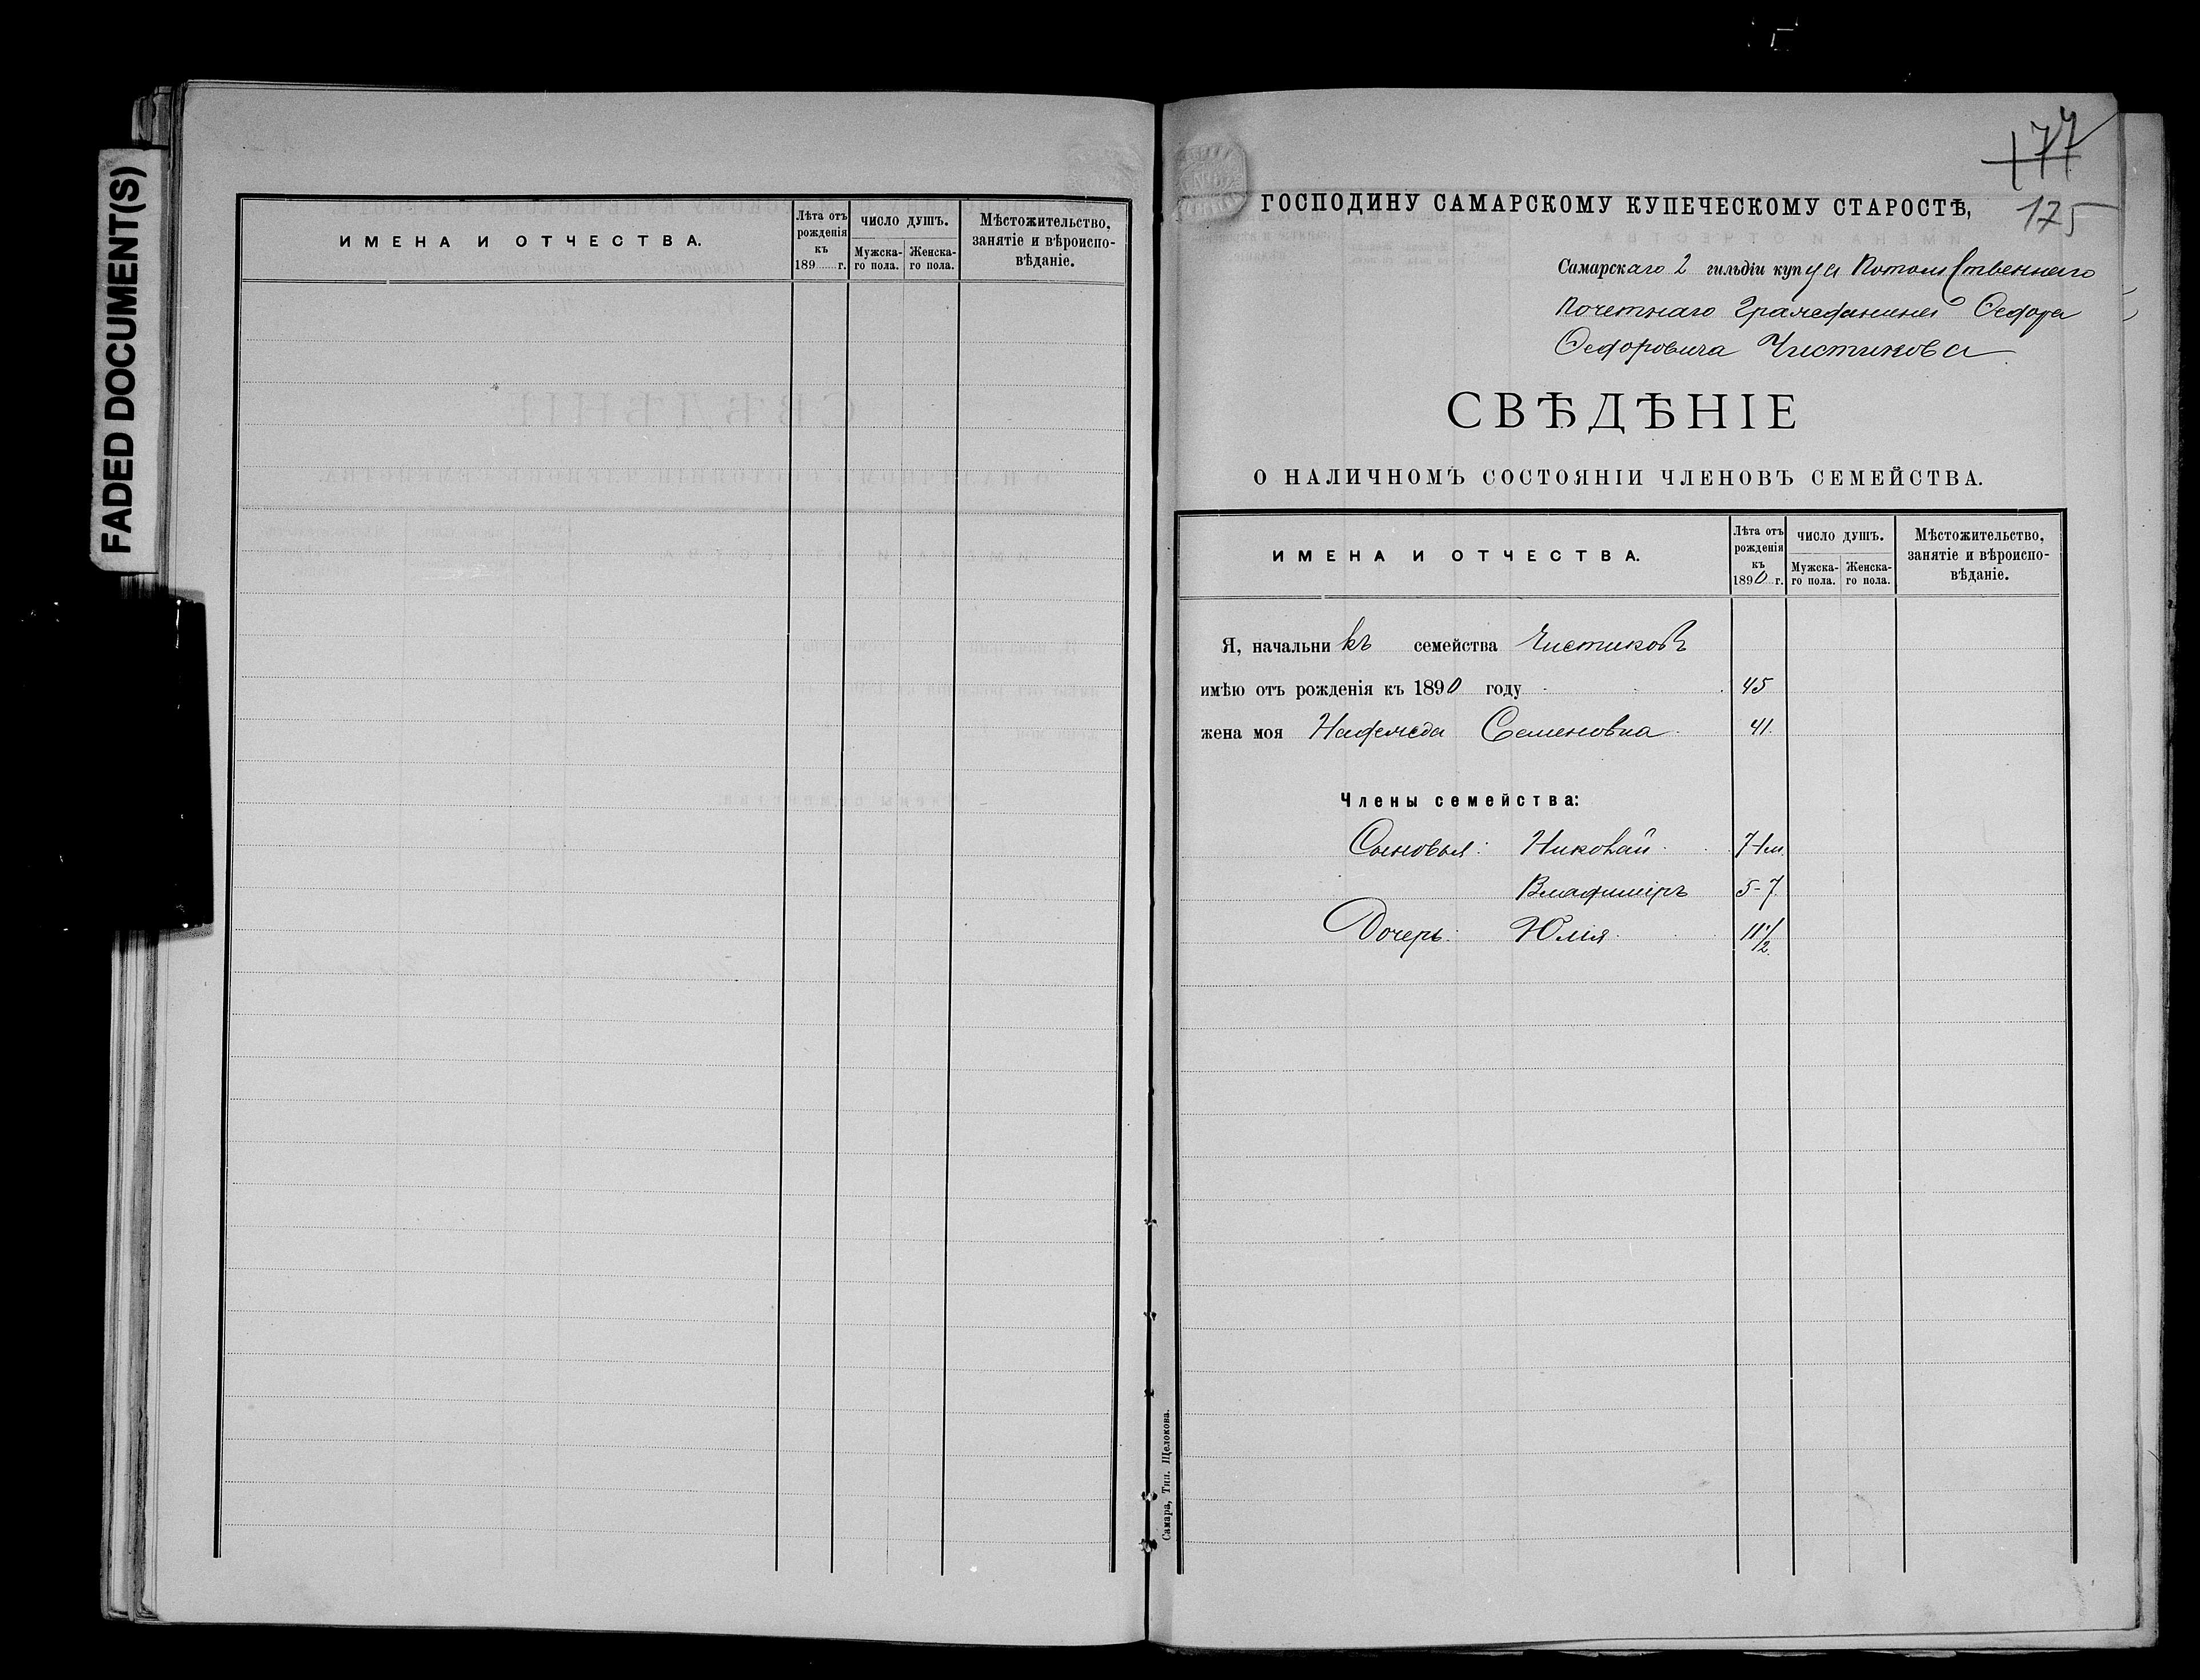 FADED DOCUMENT(S)
ИМЕНА И ОТЧЕСТВА.
Лѣта отъ рожденія къ 189 г.
ЧИСЛО ДУШЪ.
Мужска-го пола.
Женска-го пола.
Мѣстожительство, занятіе и вѣроиспо-вѣданіе.
177
175
ГОСПОДИНУ САМАРСКОМУ КУПЕЧЕСКОМУ СТАРОСТѢ,
Самарскаго 2 гильдіи купца Потомственнаго
Почетнаго Гражданина Федора
Федоровича Чистикова
СВѢДѢНІЕ
О НАЛИЧНОМЪ СОСТОЯНІИ ЧЛЕНОВЪ СЕМЕЙСТВА.
ИМЕНА И ОТЧЕСТВА.
Лѣта отъ рожденія къ 1890 г.
ЧИСЛО ДУШЪ.
Мужска-го пола.
Женска-го пола.
Мѣстожительство, занятіе и вѣроиспо-вѣданіе.
Я, начальникъ семейства Чистиковъ
имѣю отъ рожденія къ 1890 году 45
жена моя Надежда Семеновна 41.
Члены семейства:
Сыновья: Николай
Владиміръ 5-7
Дочерь: Юлія 11 1/2.
Самара, Тип. Щелокова.